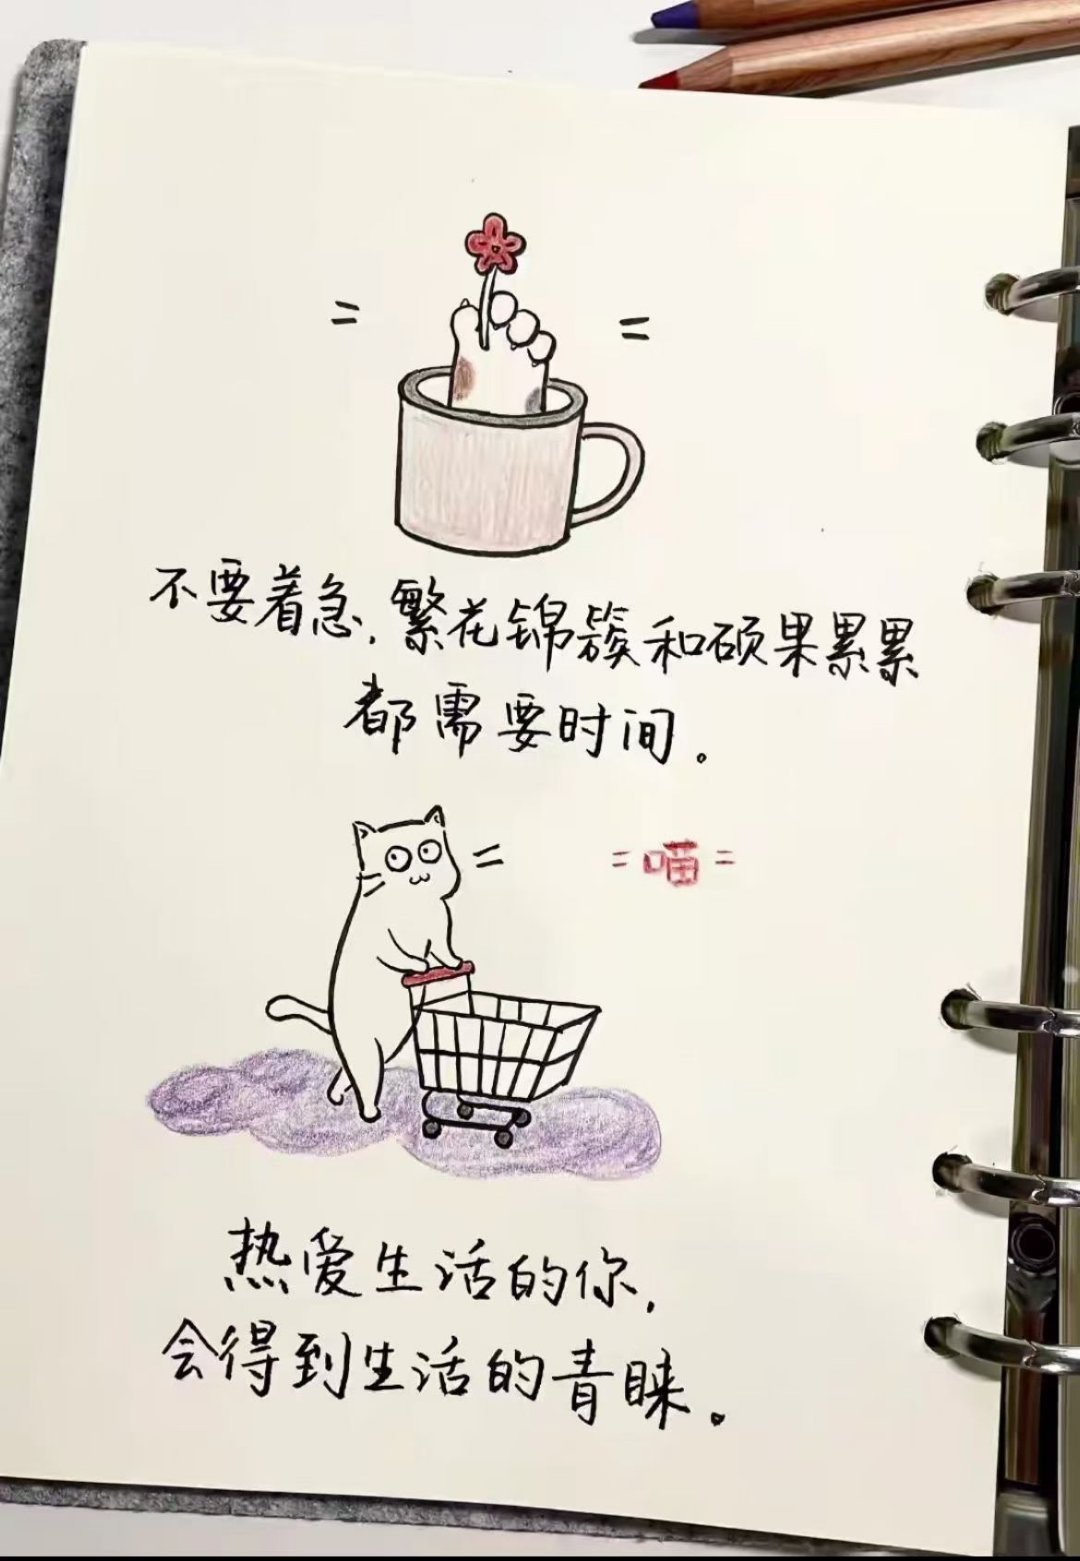 不要着急,繁花锦簇和硕果累累
都需要时间。
=喵=
热爱生活的你,
会得到生活的青睐。